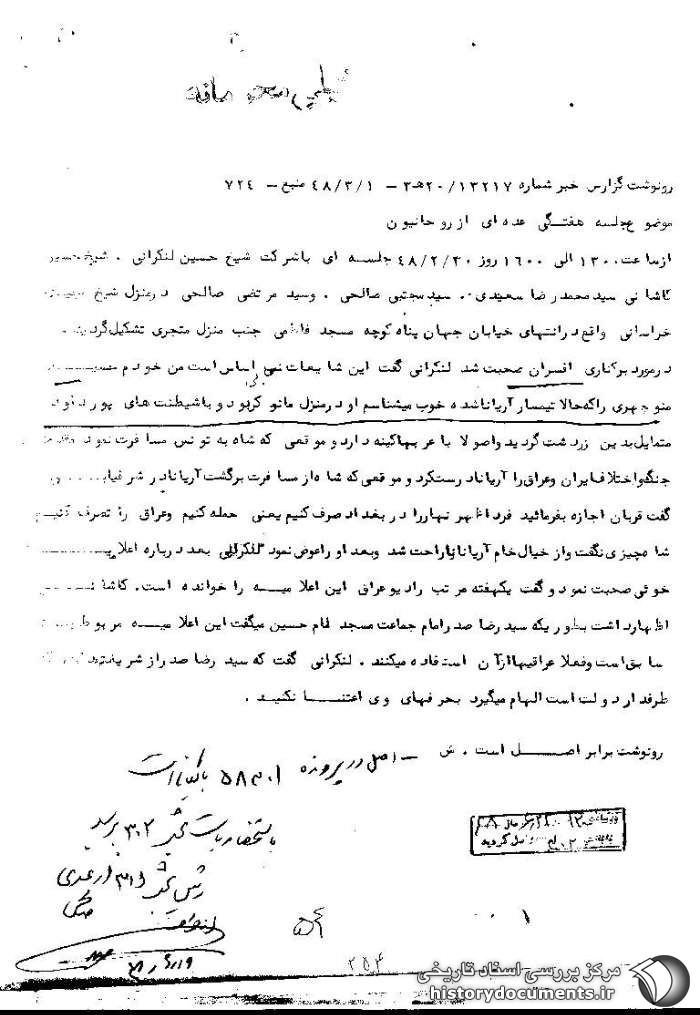 رونوشت گزارش خبر شماره ۲۰/۱۳۲۱۷ه‍۳ – ۴۸/۳/۱ منبع – ۷۲۴
موضوع جلسه هفتگی عده ای از روحانیون
ازساعت ۱۳۰۰ الی ۱۶۰۰ روز ۴۸/۲/۳۰ جلسه ای باشرکت شیخ حسین لنکرانی . شیخ حسین
کاشانی سیدمحمدرضا سعیدی . سیدمجتبی صالحی . وسید مرتضی صالحی درمنزل شیخ
خراسانی واقع درانتهای خیابان جهان پناه کوچه مسجد فاطمی جنب منزل متجری تشکیل گردید .
درمورد برکناری افسران صحبت شد لنکرانی گفت این شایعات بی اساس است من خودم
منوچهری راکه حالا تیمسار آریاناشده خوب میشناسم او درمنزل مانوکربود و باشیطنت های
متمایل بدین زردشت گردید واصولا با عربهاکینه دارد و موقعی که شاه به تونس مسافرت نمود
جنگ واختلاف ایران وعراق را آریانا درست کرد و موقعی که شاه از مسافرت برگشت آریانا در شرفیابی
گفت قربان اجازه بفرمائید فردا ظهر نهاررا در بغداد صرف کنیم یعنی حمله کنیم وعراق را تصرف کنیم
شاه چیزی نگفت واز خیال خام آریانا ناراحت شد وبعد او راعوض نمود لنکرانی بعد درباره اعلامیه
خوئی صحبت نمود و گفت یکهفته مرتب رادیو عراق این اعلامیه را خوانده است. کاشانی
اظهارداشت بطوریکه سید رضا صدر امام جماعت مسجد امام حسین میگفت این اعلامیه مربوط
سابق است وفعلا عراقیها ازآن استفاده میکنند . لنکرانی گفت که سید رضا صدر از شریعتمداری که
طرفدار دولت است الهام میگیرد بحرفهای وی اعتنا نکنید .
رونوشت برابر اصل است . ش – اصل در پرونده ۵۸۳۰۱ بایگانی است
باستحضار ریاست بخش ۳۰۲ برسد
رئیس بخش
۵۴
۰۰۱
۲۵۴
مرکز بررسی اسناد تاریخی
historydocuments.ir